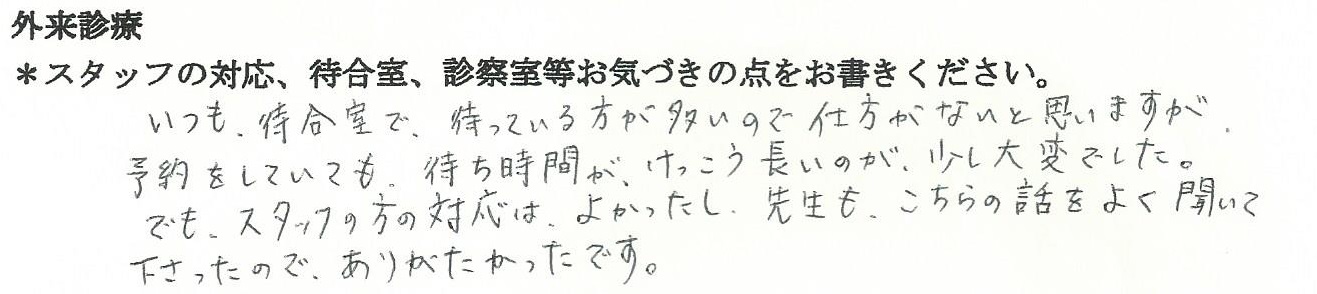 外来診療
＊スタッフの対応、待合室、診察室等お気づきの点をお書きください。
いつも、待合室で、待っている方が多いので仕方がないと思いますが、
予約をしていても、待ち時間が、けっこう長いのが、少し大変でした。
でも、スタッフの方の対応は、よかったし、先生も、こちらの話をよく聞いて
下さったので、ありがたかったです。